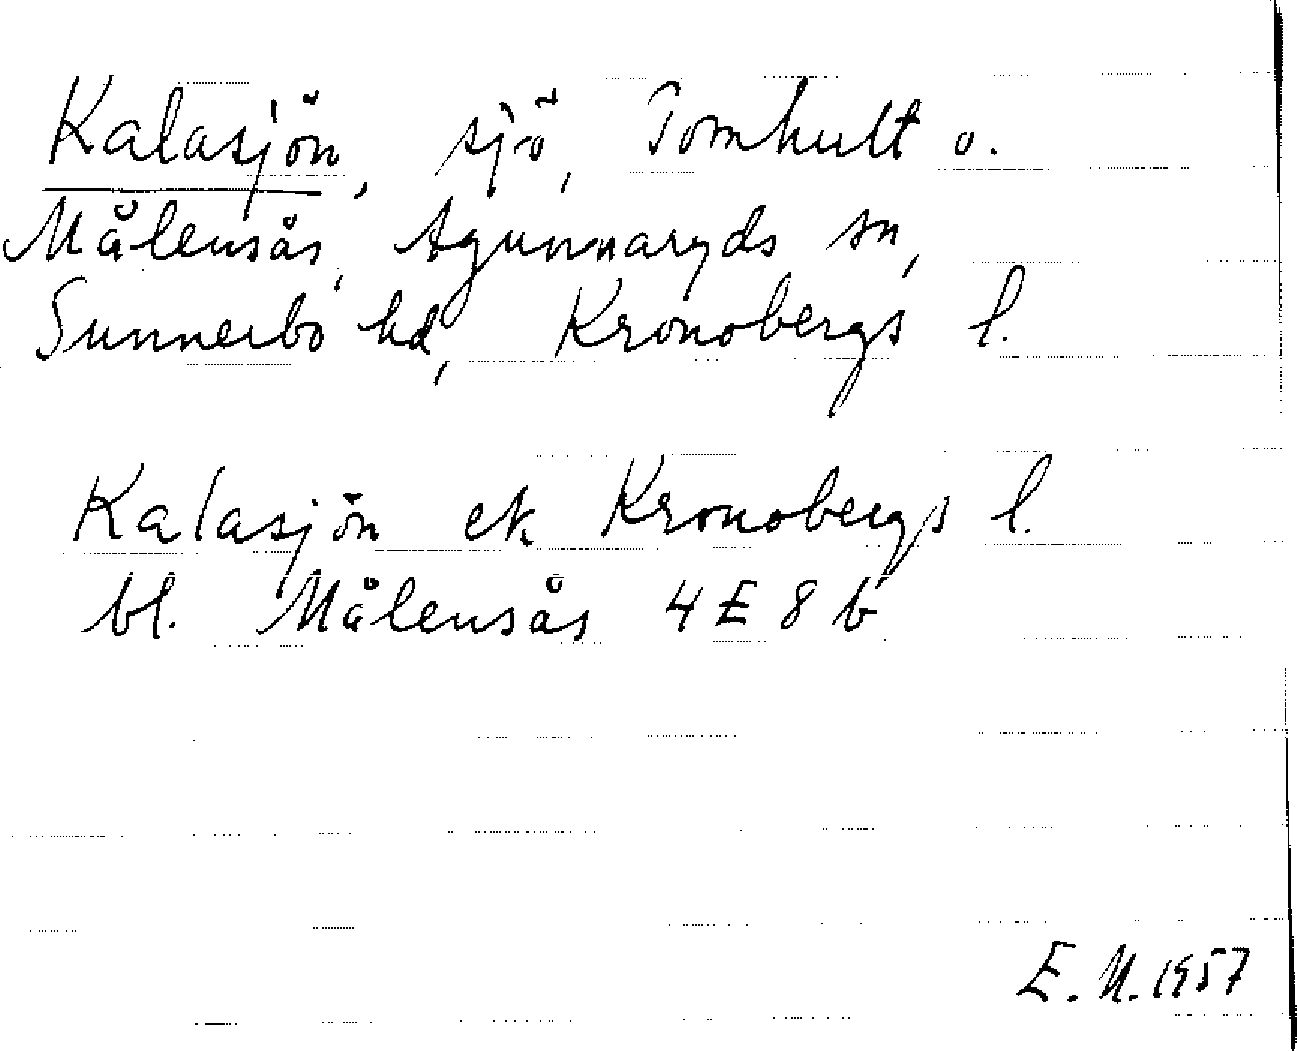 Kalasjön, sjö, Tomhult o.
Målensås, Agunnaryds sn,
Sunnerbo hd, Kronobergs l.
Kalasjön ek Kronobergs l.
bl. Målensås 4 E 8 b
E. N. 1957